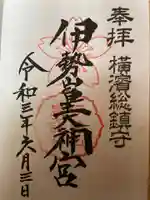 奉拝
横濱総鎮守
伊勢山皇大神宮
令和三年六月三日